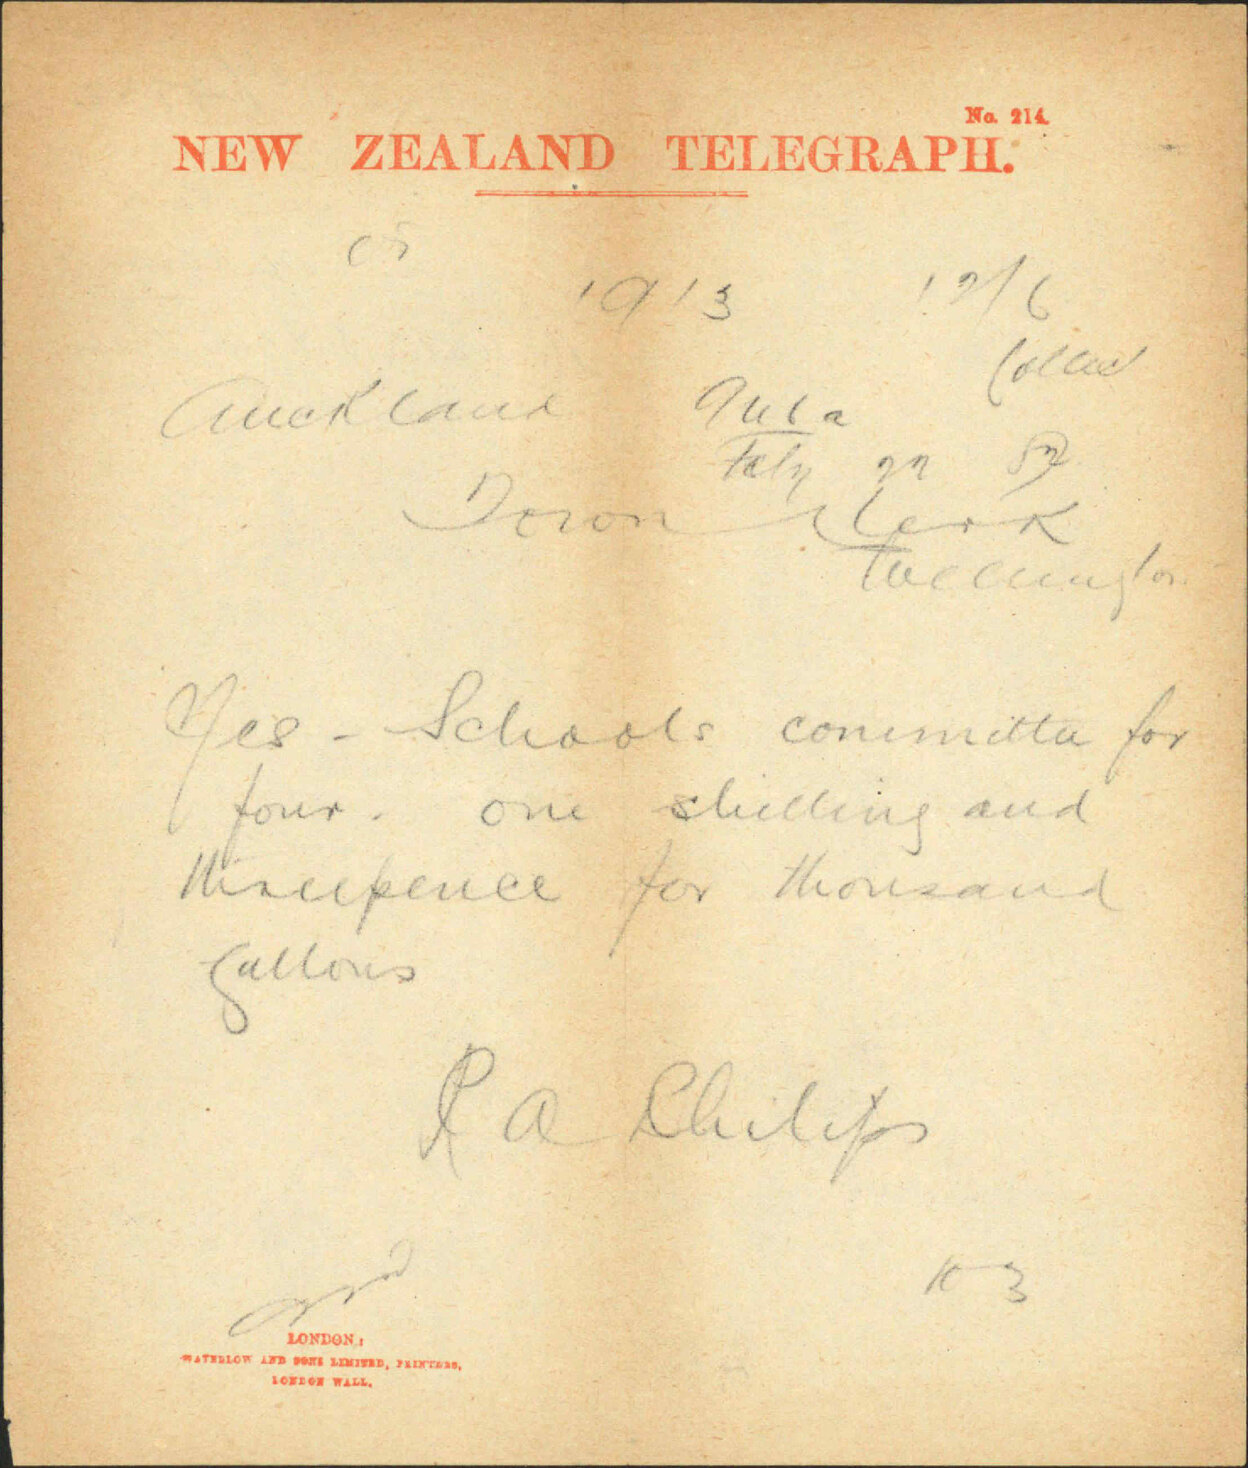 No. 214.
NEW ZEALAND TELEGRAPH.
1913 12/6
Collect
Auckland
July 22 82
Town Clerk
Wellington
Yes - Schools committee for
four. one shilling and
threepence for thousand
gallons
P A Philips
LONDON:
WATERLOW AND SONS LIMITED, PRINTERS,
LONDON WALL.